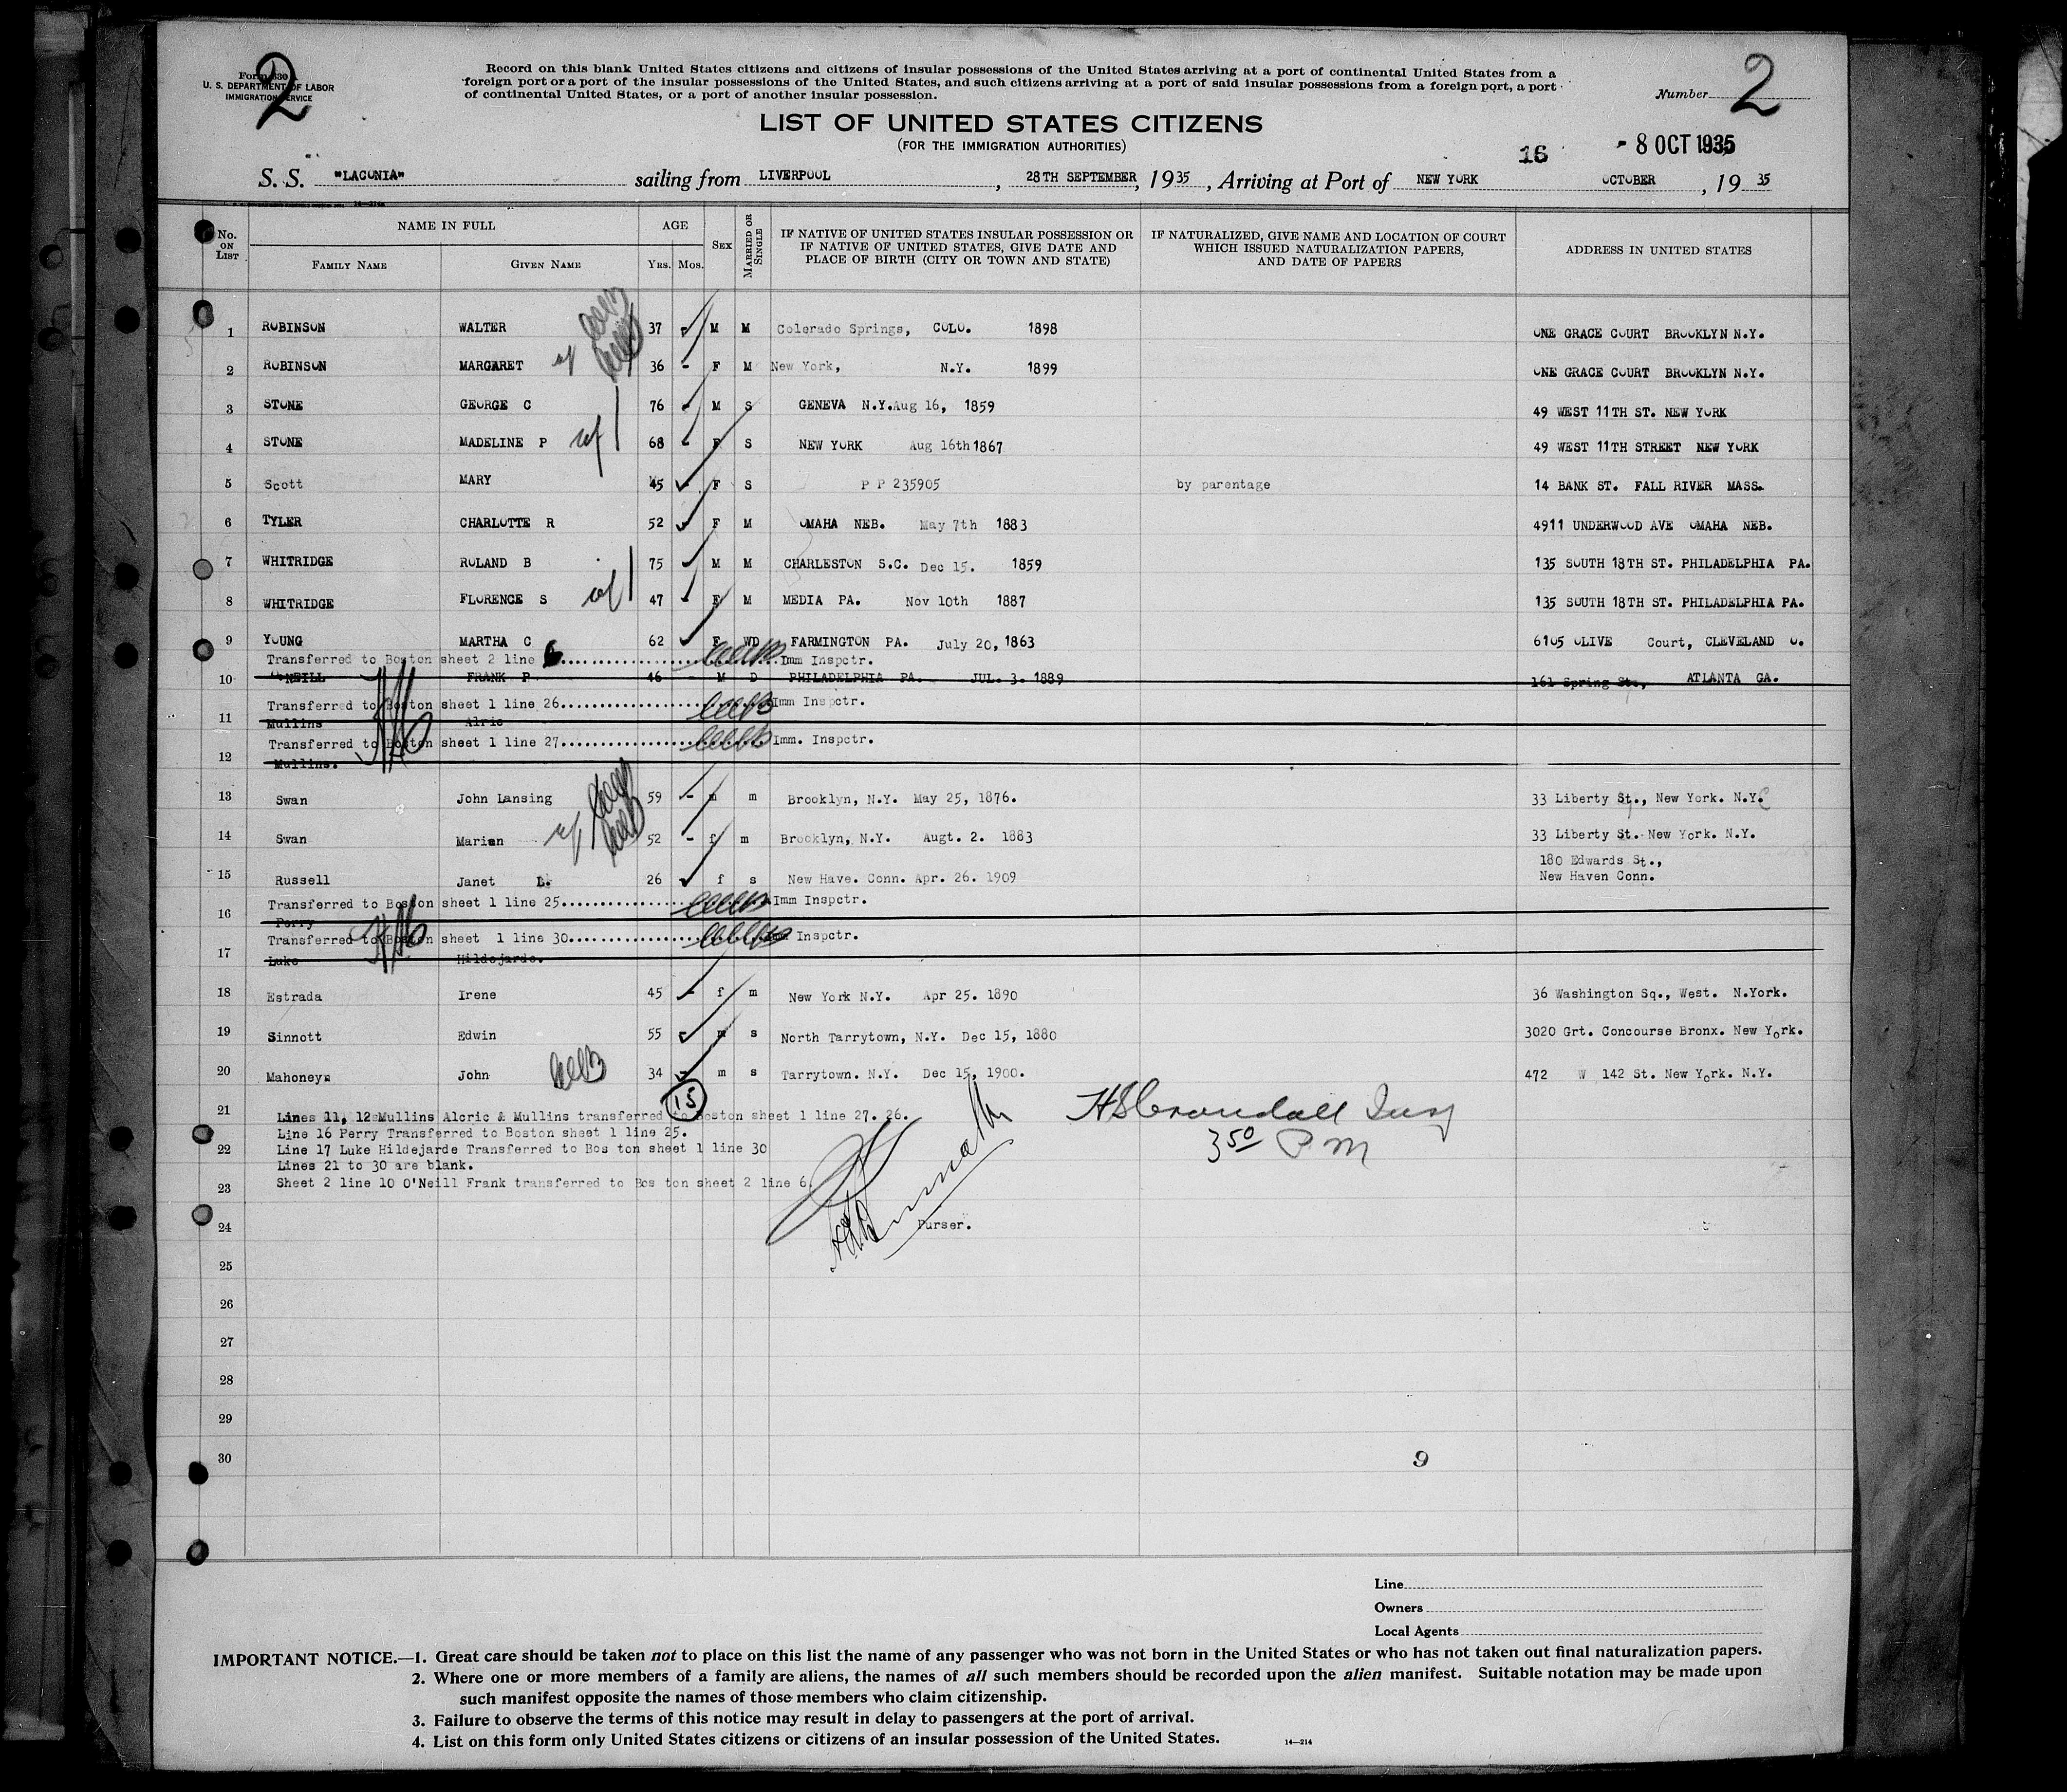 2
Form 630
U. S. DEPARTMENT OF LABOR
IMMIGRATION SERVICE
Record on this blank United States citizens and citizens of insular possessions of the United States arriving at a port of continental United States from a
foreign port or a port of the insular possessions of the United States, and such citizens arriving at a port of said insular possessions from a foreign port, a port
of continental United States, or a port of another insular possession.
Number 2
LIST OF UNITED STATES CITIZENS
(FOR THE IMMIGRATION AUTHORITIES)
16 - 8 OCT 1935
S. S. "LACONIA" sailing from LIVERPOOL, 28TH SEPTEMBER, 1935, Arriving at Port of NEW YORK OCTOBER, 19 35
No. ON LIST NAME IN FULL AGE SEX MARRIED OR SINGLE IF NATIVE OF UNITED STATES INSULAR POSSESSION OR IF NATIVE OF UNITED STATES, GIVE DATE AND PLACE OF BIRTH (CITY OR TOWN AND STATE) IF NATURALIZED, GIVE NAME AND LOCATION OF COURT WHICH ISSUED NATURALIZATION PAPERS, AND DATE OF PAPERS ADDRESS IN UNITED STATES
FAMILY NAME GIVEN NAME YRS. MOS.
1 ROBINSON WALTER 37 M M Colorado Springs, COLO. 1898 ONE GRACE COURT BROOKLYN N.Y.
2 ROBINSON MARGARET wf 36 - F M New York, N.Y. 1899 ONE GRACE COURT BROOKLYN N.Y.
3 STONE GEORGE C 76 - M S GENEVA N.Y. Aug 16, 1859 49 WEST 11TH ST. NEW YORK
4 STONE MADELINE P wf 68 - F S NEW YORK Aug 16th 1867 49 WEST 11TH STREET NEW YORK
5 Scott MARY 45 - F S P P 235905 by parentage 14 BANK ST. FALL RIVER MASS.
6 TYLER CHARLOTTE R 52 - F M OMAHA NEB. May 7th 1883 4911 UNDERWOOD AVE OMAHA NEB.
7 WHITRIDGE ROLAND B 75 M M CHARLESTON S.C. Dec 15. 1859 135 SOUTH 18TH ST. PHILADELPHIA PA.
8 WHITRIDGE FLORENCE S wf 47 - F M MEDIA PA. Nov 10th 1887 135 SOUTH 18TH ST. PHILADELPHIA PA.
9 YOUNG MARTHA C 62 F WD FARMINGTON PA. July 20, 1863 6105 OLIVE Court, CLEVELAND O.
Transferred to Boston sheet 2 line 6..........................Imm Inspctr.
10 O'NEILL FRANK P 46 - M D PHILADELPHIA PA. JUL. 3. 1889 161 Spring St., ATLANTA GA.
Transferred to Boston sheet 1 line 26..........................Imm Inspctr.
11 Mullins Alric
Transferred to Boston sheet 1 line 27..........................Imm. Inspctr.
12 Mullins.
13 Swan John Lansing 59 - m m Brooklyn, N.Y. May 25, 1876. 33 Liberty St., New York. N.Y.
14 Swan Marian wf 52 - f m Brooklyn, N.Y. Augt. 2. 1883 33 Liberty St. New York. N.Y.
15 Russell Janet D. 26 f s New Have. Conn. Apr. 26. 1909 180 Edwards St., New Haven Conn.
Transferred to Boston sheet 1 line 25..........................Imm Inspctr.
16 Perry
Transferred to Boston sheet 1 line 30..........................Imm Inspctr.
17 Luke Hildejarde.
18 Estrada Irene 45 - f m New York N.Y. Apr 25. 1890 36 Washington Sq., West. N.York.
19 Sinnott Edwin 55 m s North Tarrytown, N.Y. Dec 15, 1880 3020 Grt. Concourse Bronx. New York.
20 Mahoney John 34 - m s Tarrytown. N.Y. Dec 15, 1900. 472 W 142 St. New York. N.Y.
15
21 Lines 11, 12 Mullins Alcric & Mullins transferred to Boston sheet 1 line 27. 26.
Line 16 Perry Transferred to Boston sheet 1 line 25.
22 Line 17 Luke Hildejarde Transferred to Bos ton sheet 1 line 30
Lines 21 to 30 are blank.
23 Sheet 2 line 10 O'Neill Frank transferred to Bos ton sheet 2 line 6.
HS Crandall Insp
3 50 P M
24 Purser.
25
26
27
28
29
30 9
Line
Owners
Local Agents
IMPORTANT NOTICE.—1. Great care should be taken not to place on this list the name of any passenger who was not born in the United States or who has not taken out final naturalization papers.
2. Where one or more members of a family are aliens, the names of all such members should be recorded upon the alien manifest. Suitable notation may be made upon
such manifest opposite the names of those members who claim citizenship.
3. Failure to observe the terms of this notice may result in delay to passengers at the port of arrival.
4. List on this form only United States citizens or citizens of an insular possession of the United States.
14—214